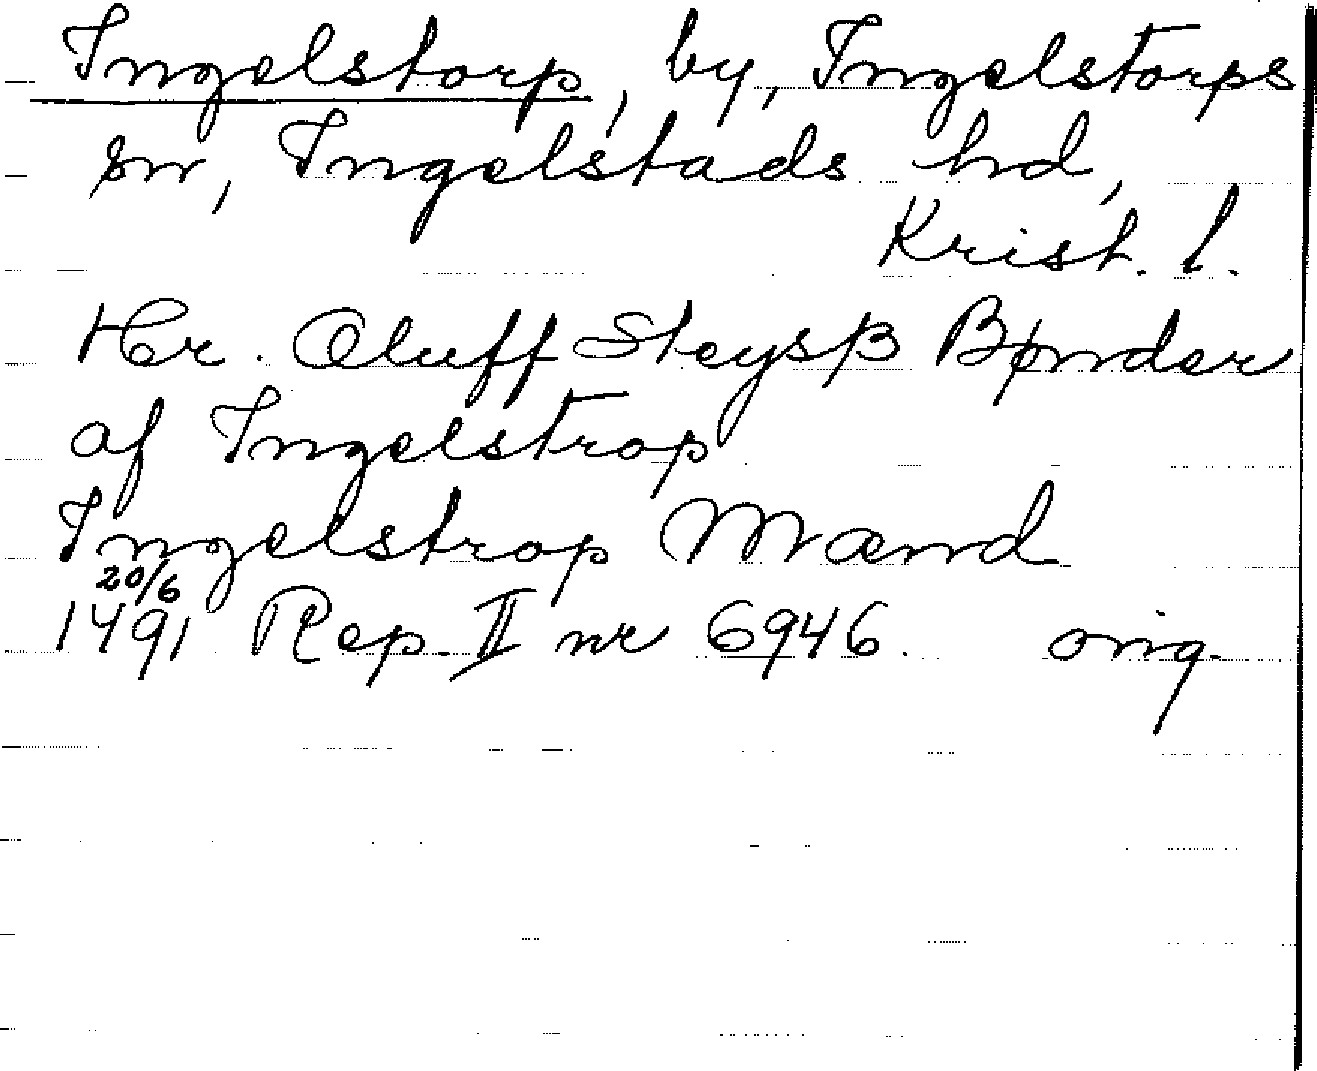 Ingelstorp, by, Ingelstorps
sn, Ingelstads hd,
Krist. l.
Hr. Oluff Steysß Bønder
af Ingelstrop
Ingelstrop Mænd
20/6
1491 Rep. II nr 6946. orig.